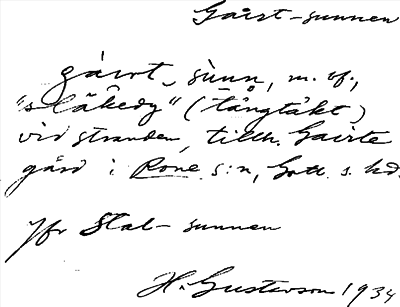 Gairt-sunnen
gai̯rt-sùnn, m. bf.,
"släkedy" (tångtäkt)
vid stranden, tillh. Gairte
gård i Rone s:n, Gotl. s. hd.
Jfr Stal-sunnen
H. Gustavson 1934